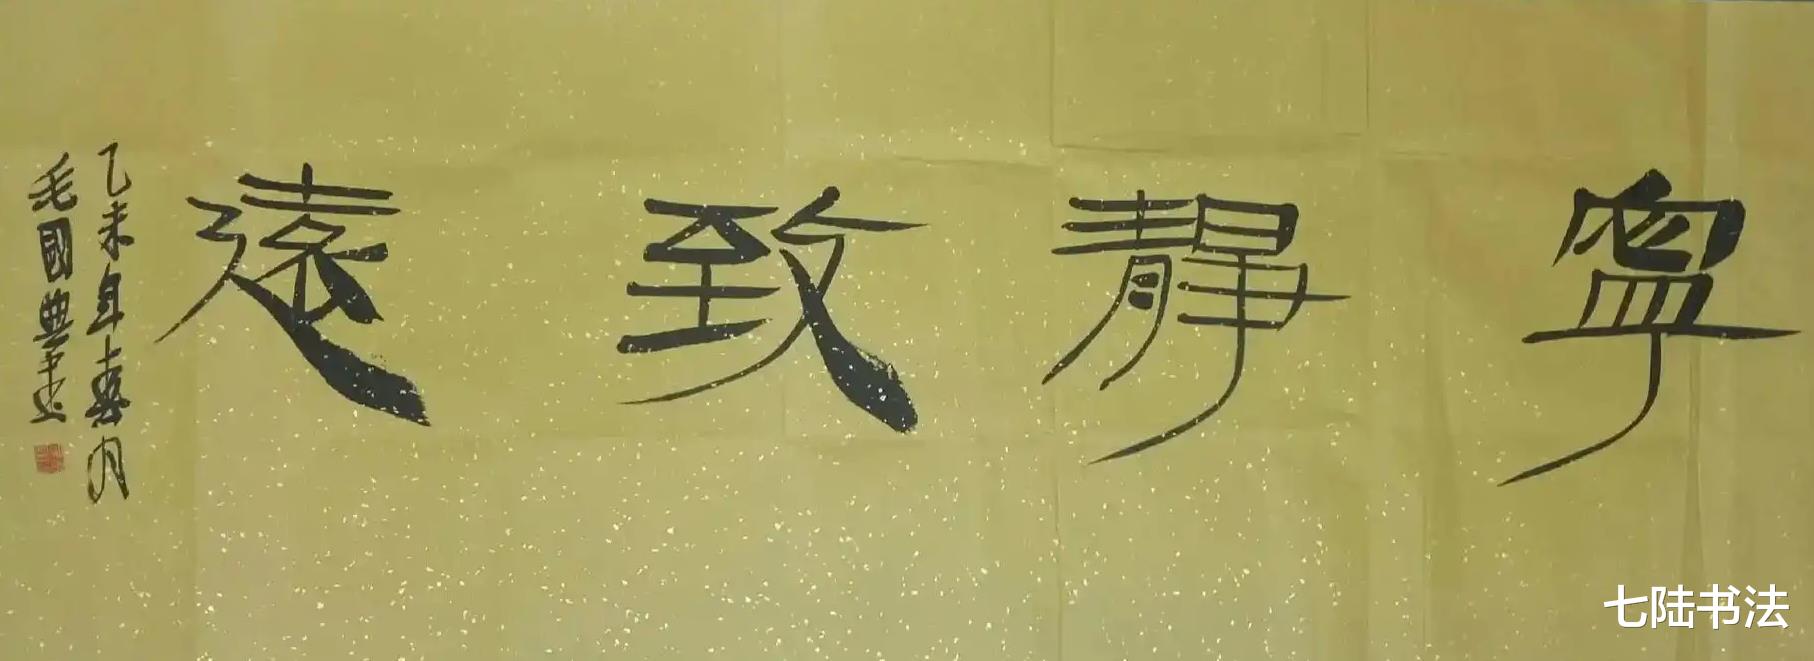 寧靜致遠
乙未年喜月
毛國典書
七陆书法